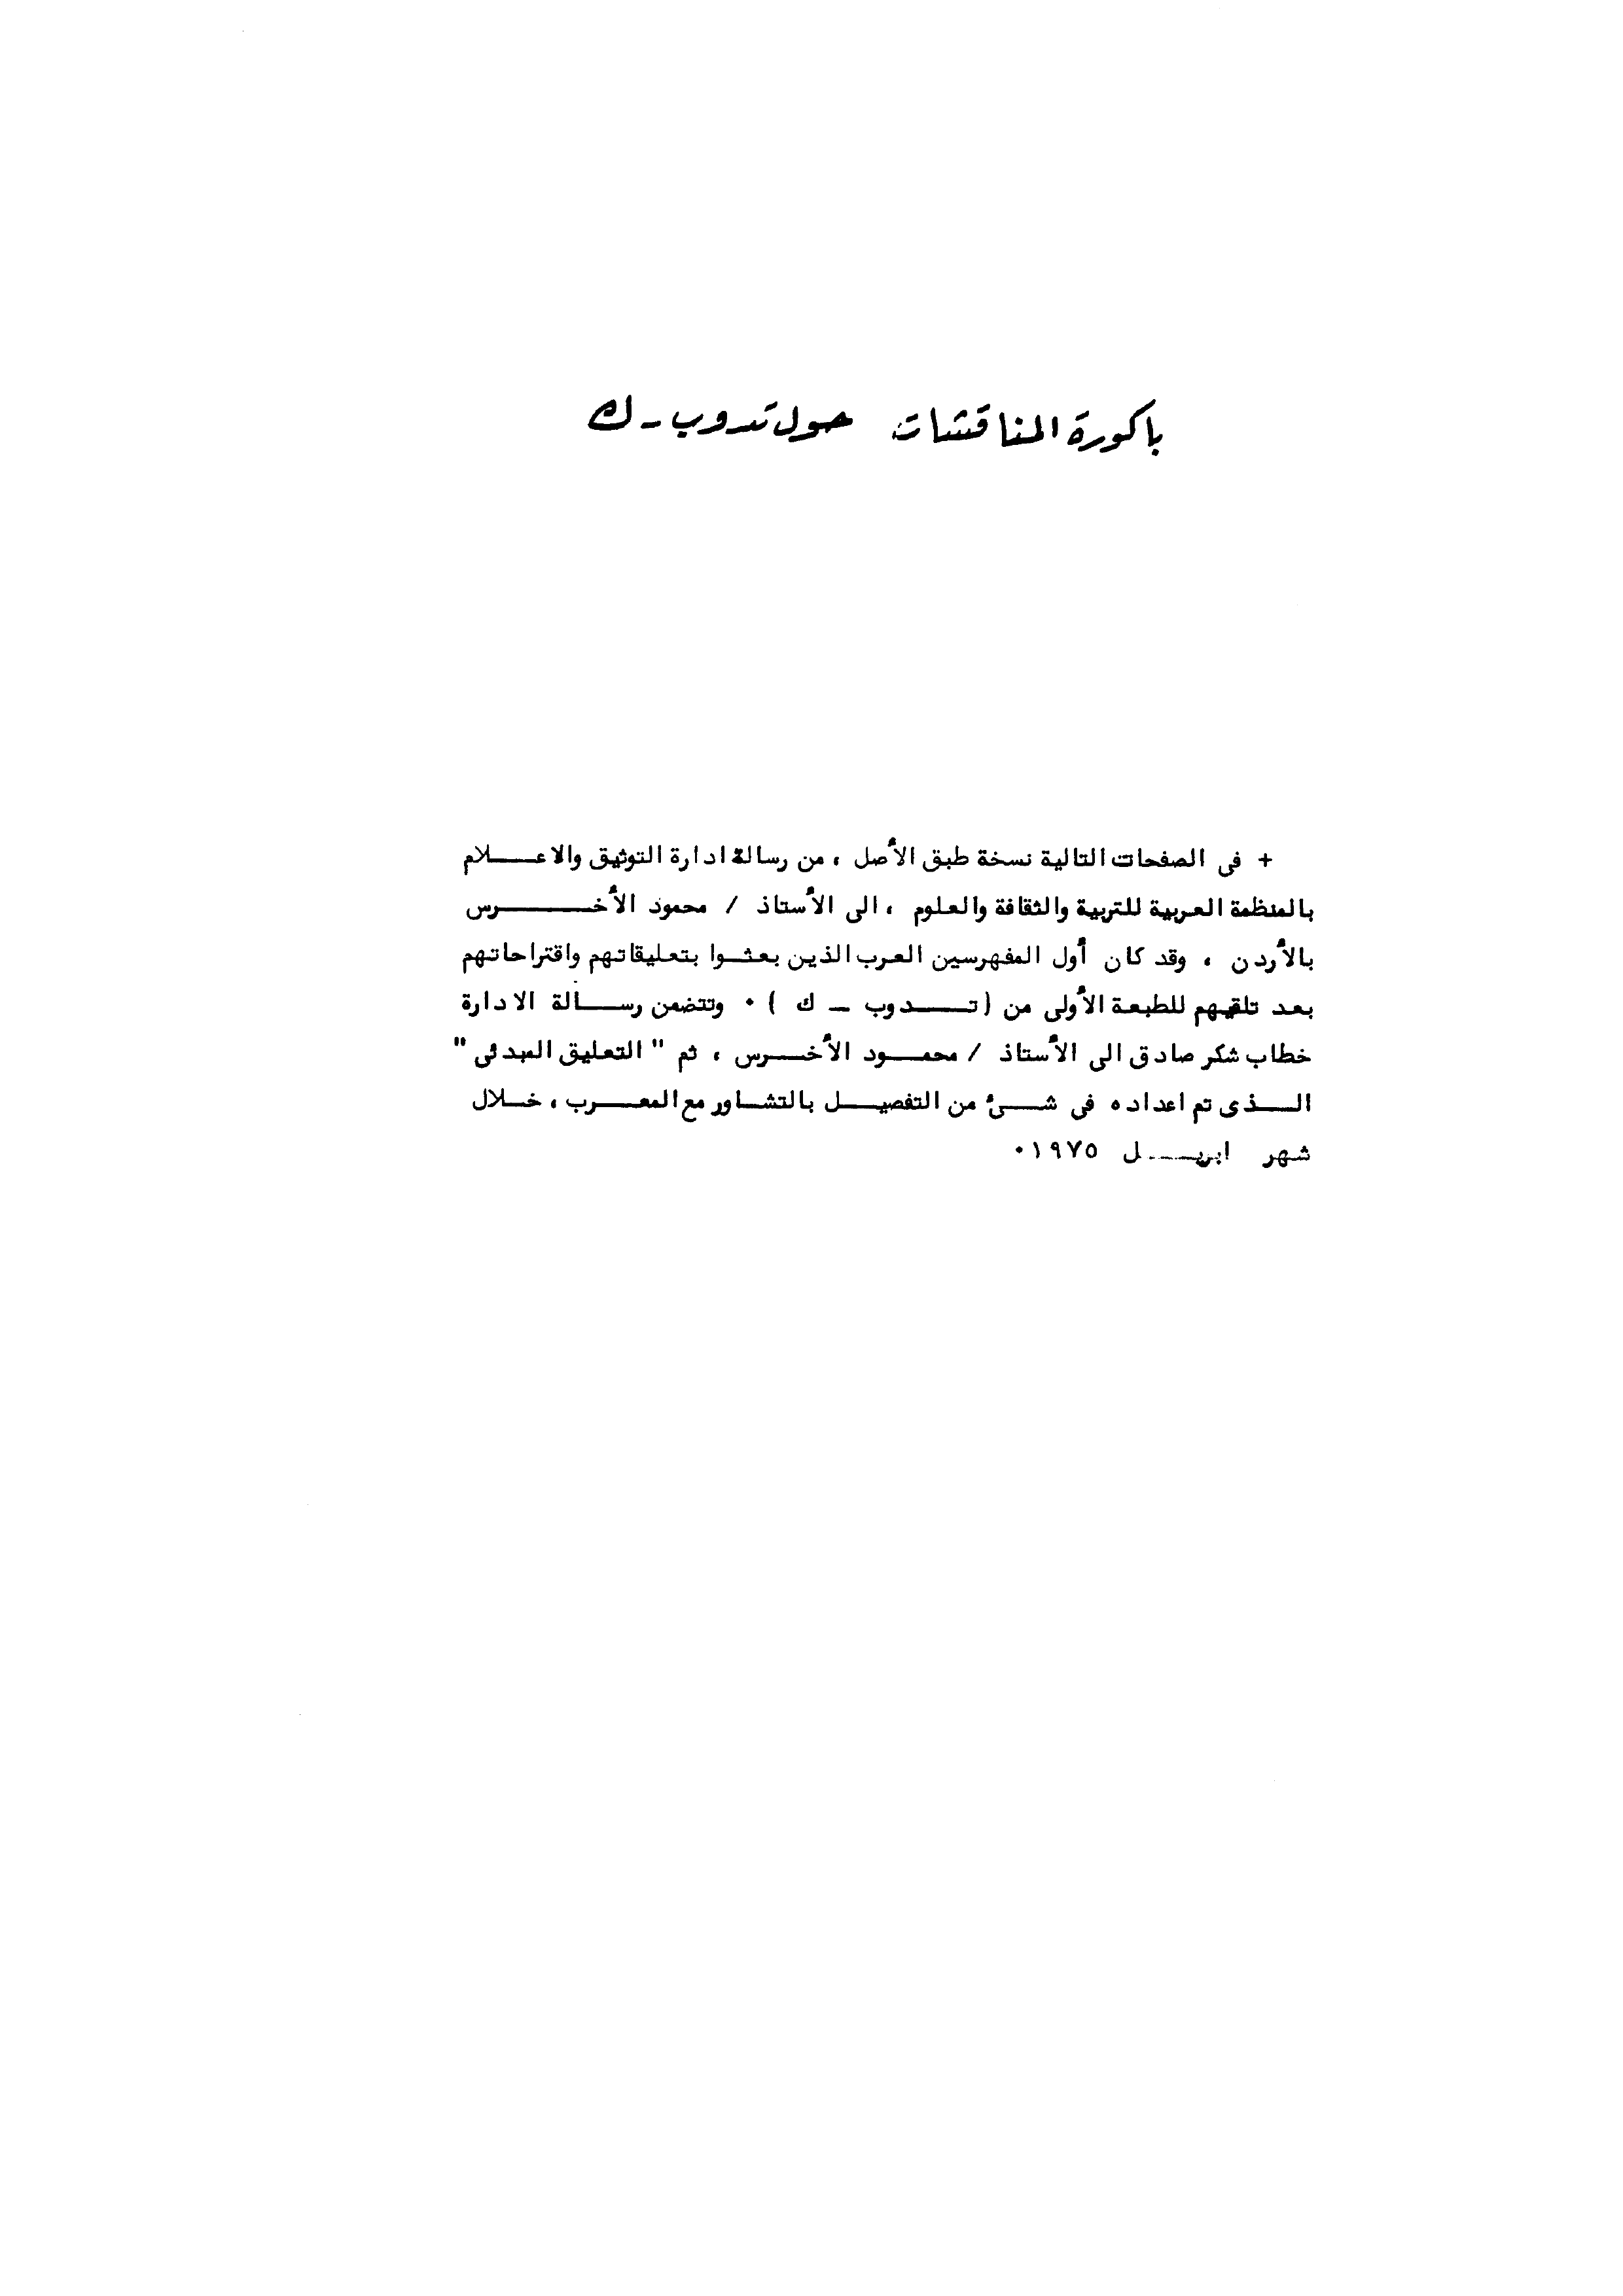 باكورة المناقشات حول تدوب - ك
+ فى الصفحات التالية نسخة طبق الأصل ، من رسالة ادارة التوثيق والاعـــلام
بالمنظمة العربية للتربية والثقافة والعلوم ، الى الأستاذ / محمود الأخـــــرس
بالأردن ، وقد كان أول المفهرسين العرب الذين بعثـوا بتعليقاتهم واقتراحاتهم
بعد تلقيهم للطبعة الأولى من (تـــدوب ـ ك ) ٠ وتتضمن رســـالة الادارة
خطاب شكر صادق الى الأستاذ / محمـــود الأخـــرس ، ثم " التعليق المبدئى "
الـــذى تم اعداده فى شـــئ من التفصيـــل بالتشـــاور مع المعـــرب ، خـــلال
شهر ابريـــل ١٩٧٥ ٠